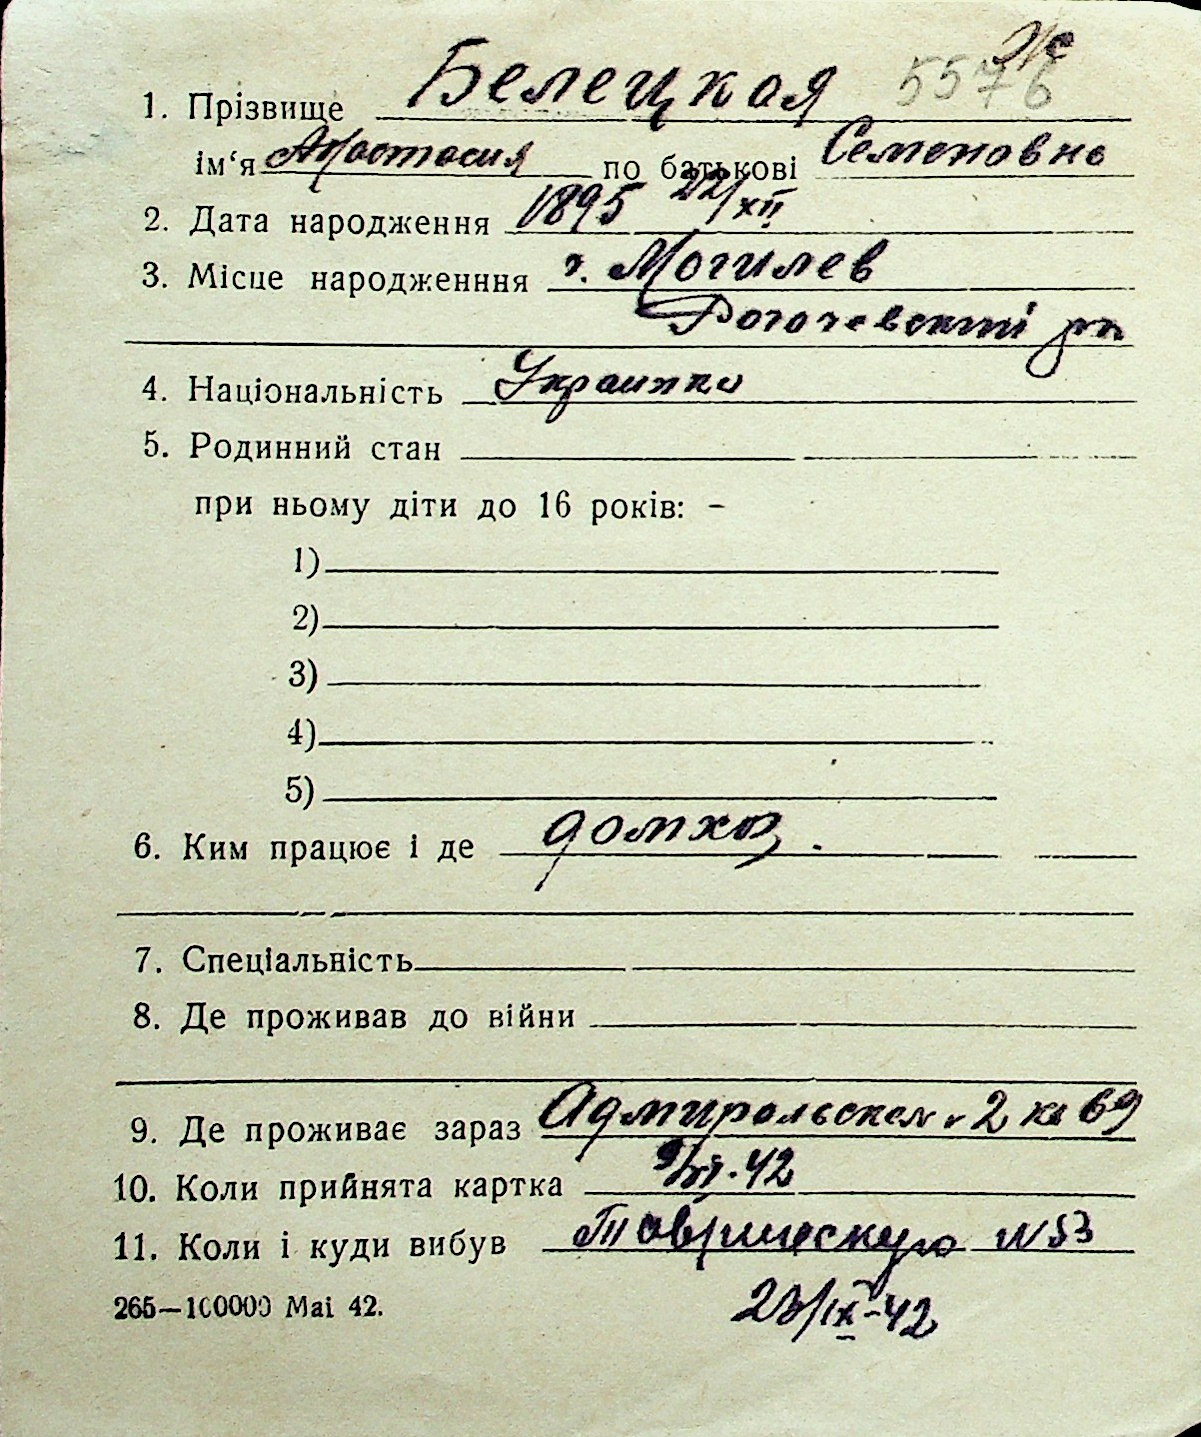 5576
1. Прізвище Белецкая
ім‘я Анастасия по батькові Семеновна
2. Дата народження 1895 22/XII
3. Місце народженння г. Могилев
Рогачевский рн
4. Національність Украинка
5. Родинний стан
при ньому діти до 16 років: –
1)
2)
3)
4)
5)
6. Ким працює і де домхоз.
7. Спеціальність
8. Де проживав до війни
9. Де проживає зараз Адмиральская 2 кв 69
10. Коли прийнята картка 42
11. Коли і куди вибув Таврическую N 53
265—100000 Маі 42.
23/IX-42